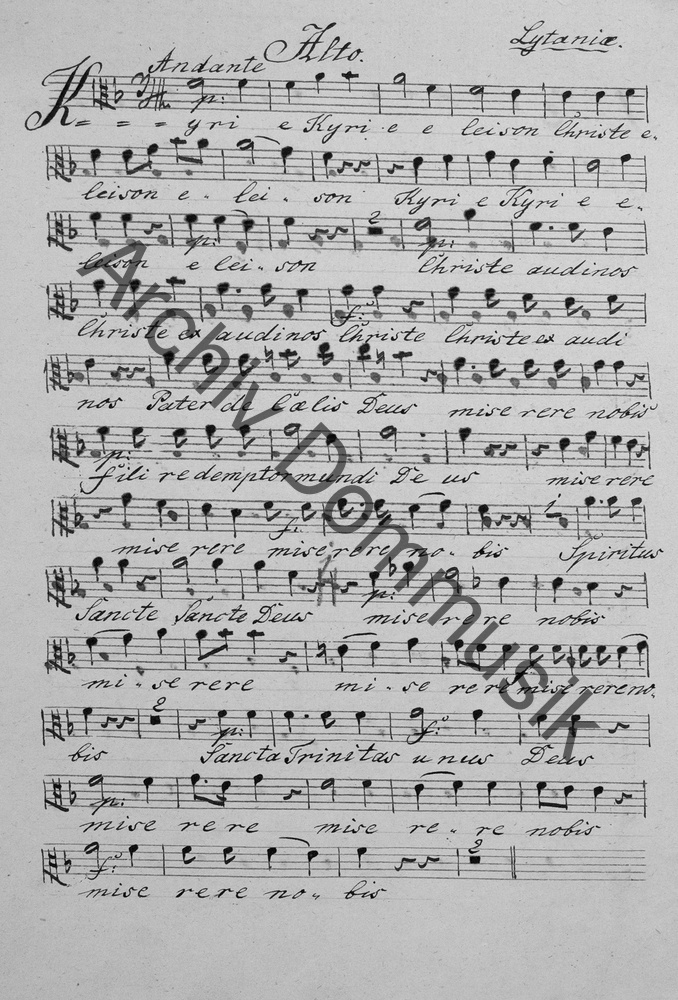 Alto.
Lytaniæ.
Andante
p:
K = = = yri e Kyri e e leison Christe e-
leison e .. lei . son Kyri e Kyri e e-
2
p: p:
leison e lei .. son Christe audinos
f:
Christe ex audinos Christe Christe ex audi
nos Pater de Cœlis Deus mise rere nobis
p:
Fili redemptor mundi De us mise rere
f: 1
mise rere mise rere no .. bis Spiritus
p:
Sancte Sancte Deus mise re re nobis
mi . . se rere mi . . se re re mise rere no.
2
p: f:
bis Sancta Trinitas u nus Deus
p:
mise re re mise re .. re nobis
f: 2
mise rere no .. bis
Archiv Dommusik